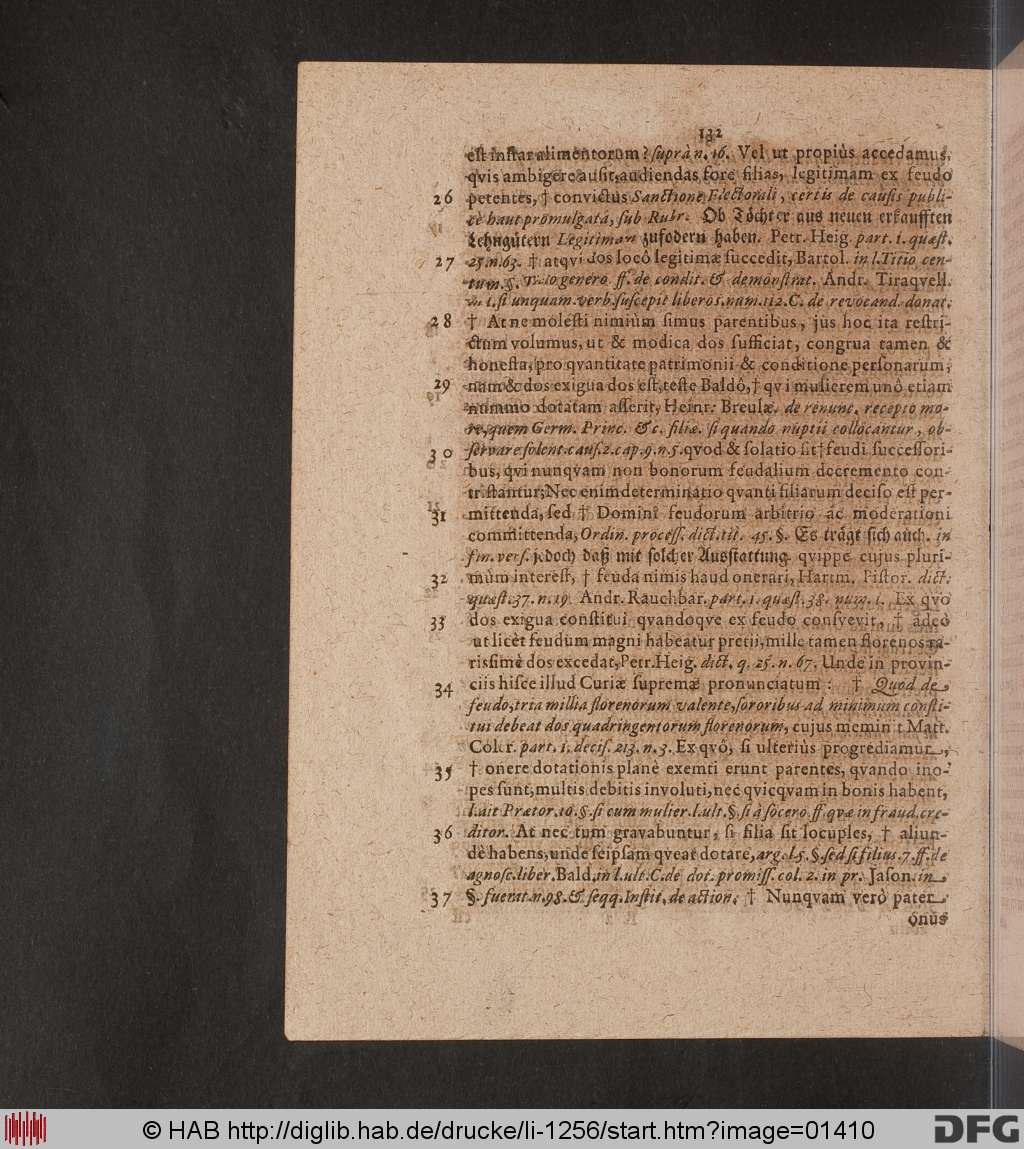 132
est instar alimentorum? suprà n. 16. Vel ut propiùs accedamus,
qvis ambigere ausit, audiendas fore filias, legitimam ex feudo
26 petentes, † convictus Sanctione Electorali, certis de causis publi-
cè haut promulgatâ, sub Rubr. Ob Töchter aus neuen erkaufften
Lehngütern Legitimam zufodern haben. Petr. Heig. part. 1. quæst.
27 25. n. 63. † atqvi dos locô legitimæ succedit, Bartol. in l. Titio cen-
tum. §. Titio genero ff. de condit. & demonstrat. Andr. Tiraqvell.
in l. si unquam. verb. suscepit liberos. num. 112. C. de revocand. donat.
28 † At ne molesti nimiùm simus parentibus, jus hoc ita restri-
ctum volumus, ut & modica dos sufficiat, congrua tamen &
honesta, pro qvantitate patrimonii & conditione personarum;
29 nam & dos exigua dos est, teste Baldô, † qvi mulierem unô etiam
nummo dotatam asserit, Heinr. Breulæ. de renunc. recepto mo-
re, quem Germ. Princ. &c. filiæ. si quando nuptii collocantur, ob-
30 servare solent. caus. 2. cap. 9. n. 5. qvod & solatio sit † feudi successori-
bus, qvi nunqvam non bonorum feudalium decremento con-
tristantur; Nec enim determinatio qvanti filiarum deciso est per-
31 mittenda, sed † Domini feudorum arbitrio ac moderationi
committenda, Ordin. process. dict. tit. 45. §. Es trägt sich auch. in
fin. vers. jedoch daß mit solcher Ausstattung. qvippe cujus pluri-
32 mùm interest, † feuda nimis haud onerari, Hartm. Pistor. dict.
quæst. 37. n. 19. Andr. Rauchbar. part. 1. quæst. 38. num. 1. Ex qvo
33 dos exigua constitui qvandoqve ex feudo consvevit, † adeò
ut licèt feudum magni habeatur pretii, mille tamen florenos ra-
rissimè dos excedat, Petr. Heig. dict. q. 25. n. 67. Unde in provin-
34 ciis hisce illud Curiæ supremæ pronunciatum: † Quod de
feudo, tria millia florenorum valente, sororibus ad minimum consti-
tui debeat dos quadringentorum florenorum, cujus meminit Matt.
Coler. part. 1. decis. 213. n. 3. Ex qvô, si ulteriùs progrediamur,
35 † onere dotationis planè exemti erunt parentes, qvando ino-
pes sunt, multis debitis involuti, nec qvicqvam in bonis habent,
l. ait Prætor. 10. §. si cum mulier. l. ult. §. si à socero ff. quæ in fraud. cre-
36 ditor. At nec tum gravabuntur, si filia sit locuples, † aliun-
dè habens, unde seipsam qveat dotare, arg. l. 5. §. sed si filius. 7. ff. de
agnosc. liber. Bald. in l. ult. C. de dot. promiss. col. 2. in pr. Jason. in
37 §. fuerat. n. 98. & seqq. Instit. de action. † Nunqvam verò pater
onus
© HAB http://diglib.hab.de/drucke/li-1256/start.htm?image=01410
DFG